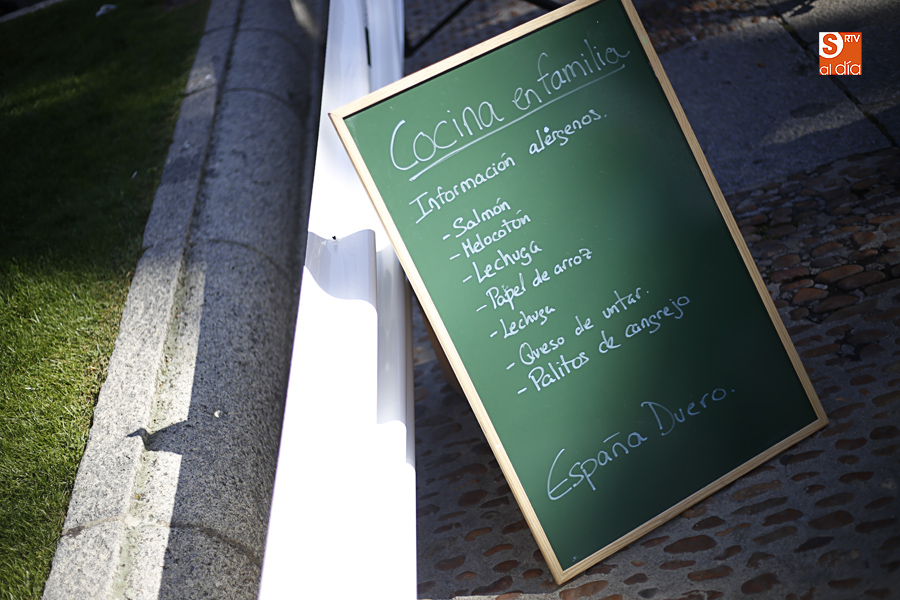 Cocina en familia
Información alérgenos.
- Salmón
- Melocotón
- Lechuga
- Papel de arroz
- Lechuga
- Queso de untar.
- Palitos de cangrejo
España Duero.
S RTV
al día